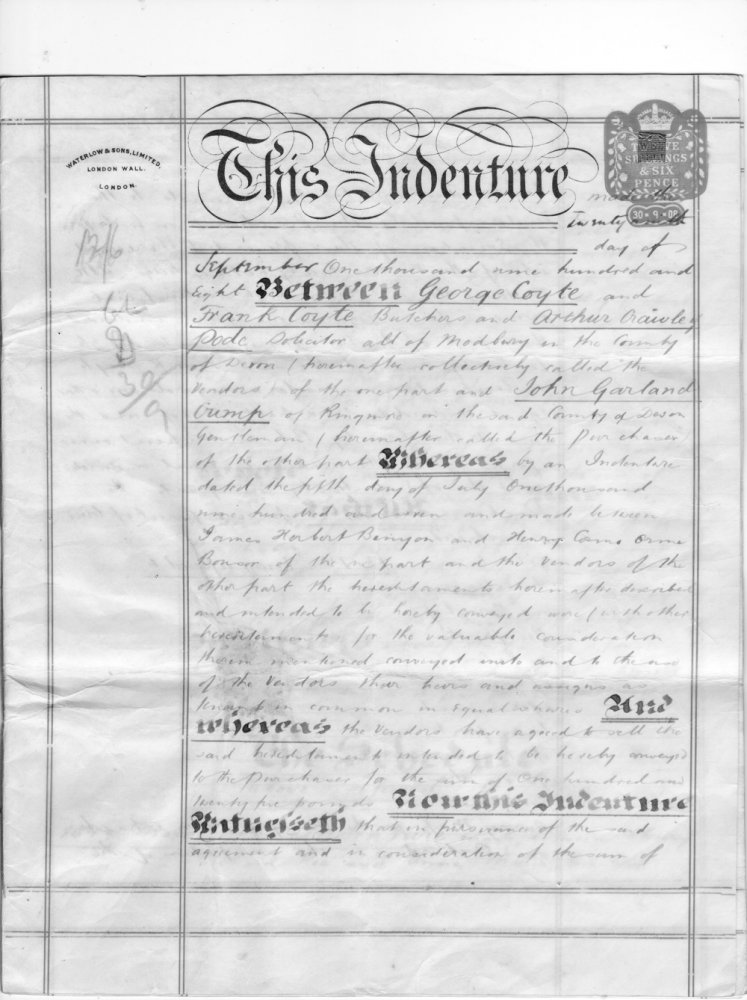 WATERLOW & SONS, LIMITED.
LONDON WALL.
LONDON.
This Indenture
TWELVE
SHILLINGS
& SIX
PENCE
30·9·08
made the
Twenty
day of
September One thousand nine hundred and
Eight Between George Coyte and
Frank Coyte Butchers and Arthur Crawley
Pode Solicitor all of Modbury in the County
of Devon (hereinafter collectively called the
Vendors) of the one part and John Garland
Crimp of Ringmore in the said County of Devon
Gentleman (hereinafter called the Purchaser
of the other part Whereas by an Indenture
dated the fifth day of July One thousand
nine hundred and seven and made between
James Herbert Benyon and Henry Cosmo Orme
Bonsor of the one part and the Vendors of the
other part the hereditaments hereinafter described
and intended to be hereby conveyed were (with other
hereditaments for the valuable consideration
therein mentioned conveyed unto and to the use
of the Vendors their heirs and assigns as
tenants in common in equal shares And
whereas the Vendors have agreed to sell the
said hereditaments intended to be hereby conveyed
to the Purchaser for the sum of One hundred and
twenty five pounds Now this Indenture
Witnesseth that in pursuance of the said
agreement and in consideration of the sum of
12/6
30/9